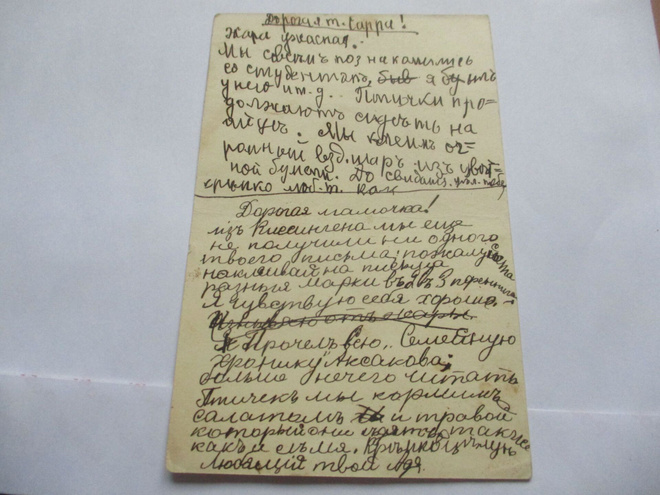 Дорогая т. Гарри!
Жара ужасная.
Мы совсемъ познакомились
со студентомъ, быв я былъ
у него и т. д. . Птички про=
должаютъ сидѣть на
яйцѣ. Мы клеимъ ог=
ромный возд. шаръ изъ цвѣт=
ной бумаги. До свиданiя
крѣпко люб. т. Как
Дорогая мамочка!
изъ Киссингена мы еще
не получили ни одного
твоего письма; пожалуйста
наклеивай на письма
разныя марки въ 3 пфенига
Я чувствую себя хорошо.
отъ жары.
Я Прочелъ всю „Семейную
хронику" Аксакова;
больше нечего читать
Птичекъ мы кормимъ
салатомъ и травой
который они также
какъ и сѣмя. Крѣпко цѣлую
любящiй твой